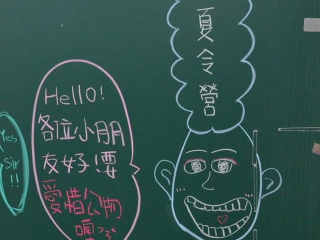 夏令營
Hello!
各位小朋
友好!要
愛惜公物
唷~
Yes
Sir
!!